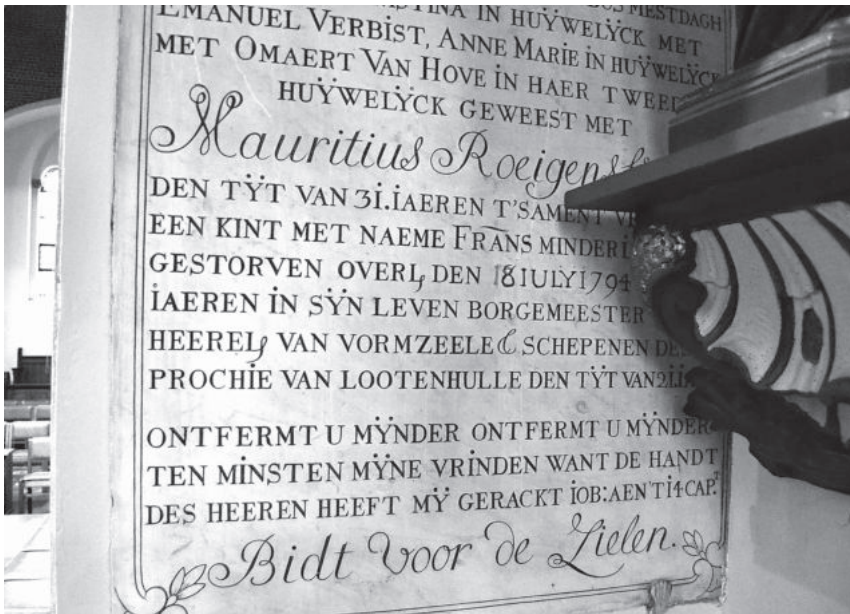 IN HUŸWELŸCK MET
EMANUEL VERBIST, ANNE MARIE IN HUŸWELŸCK
MET OMAERT VAN HOVE IN HAER
HUŸWELŸCK GEWEEST MET
Mauritius
DEN TŸT VAN 31. IAEREN T'SAMENT
EEN KINT MET NAEME FRANS
GESTORVEN OVERL, DEN 18 IULY 1794
IAEREN IN SŸN LEVEN BORGEMEESTER
HEEREL, VAN VORMZEELE & SCHEPENEN
PROCHIE VAN LOOTENHULLE DEN TŸT VAN
ONTFERMT U MŸNDER ONTFERMT U MŸNDER
TEN MINSTEN MŸNE VRINDEN WANT DE HANDT
DES HEEREN HEEFT MŸ GERACKT IOB: AEN 'T 14 CAP:
Bidt Voor de Zielen.